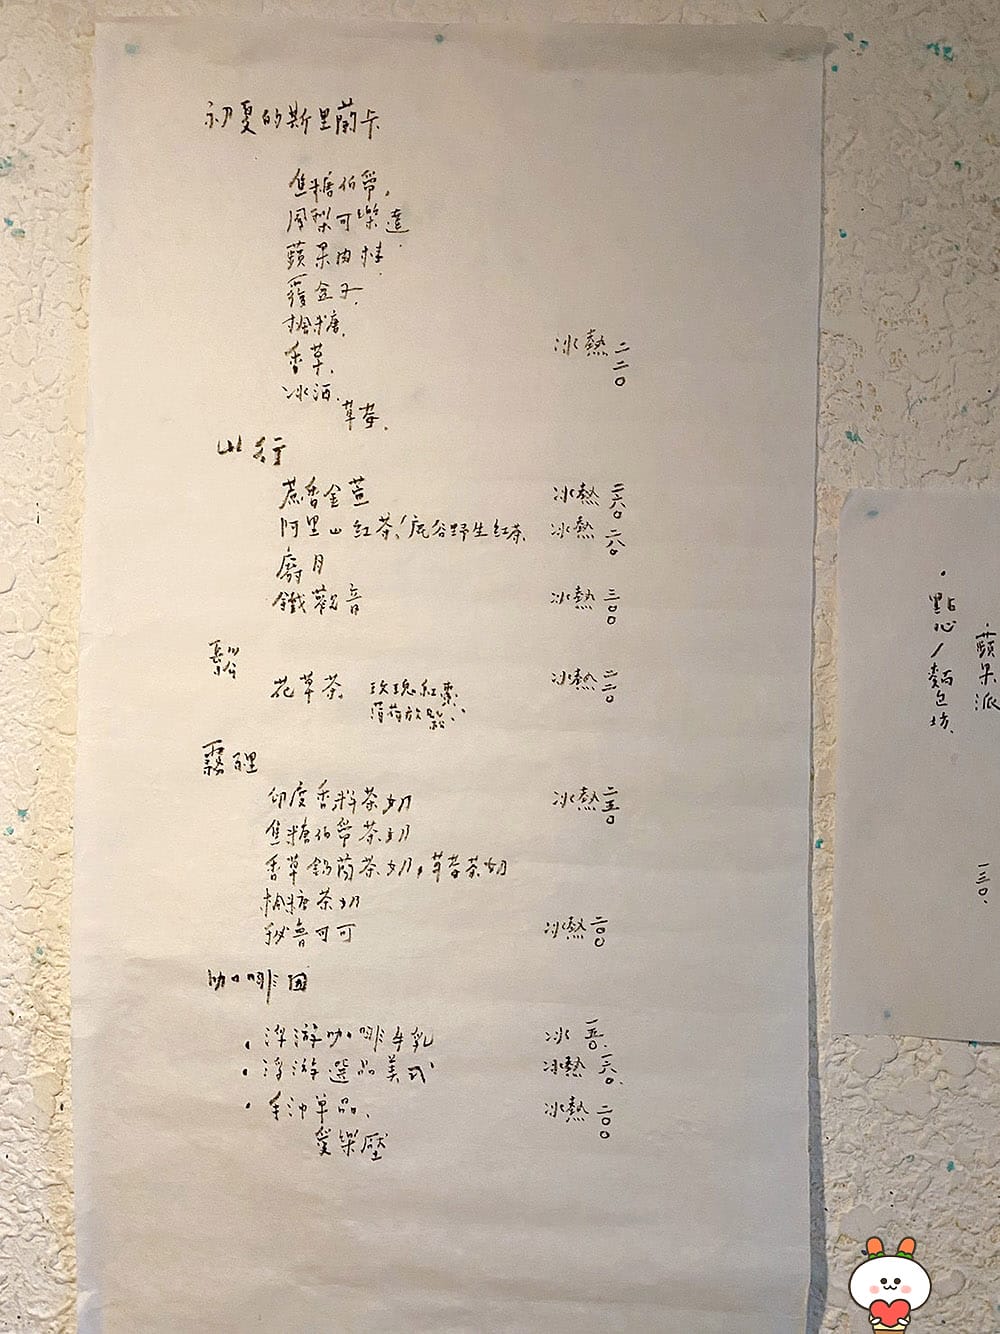 初夏的斯里蘭卡
焦糖伯爵
鳳梨可樂達
蘋果肉桂
覆盆子
楓糖
香草 冰熱 二二〇
冰酒
草莓
山行
蔗香金萱 冰熱 二六〇
阿里山紅茶/鹿谷野生紅茶 冰熱 二八〇
月
鐵觀音 冰熱 三〇〇
鬆
花草茶 玫瑰紅棗 冰熱 二二〇
薄荷放鬆
霧裡
印度香料茶奶 冰熱 二五〇
焦糖伯爵茶奶
香草錫蘭茶奶,草莓茶奶
楓糖茶奶
秘魯可可 冰熱 二〇〇
咖啡因
·浮游咖啡牛乳 冰
·浮游選品美式 冰熱 一六〇
·手沖單品 冰熱 二〇〇
愛樂壓
·點心/麵包坊
·蘋果派 一三〇